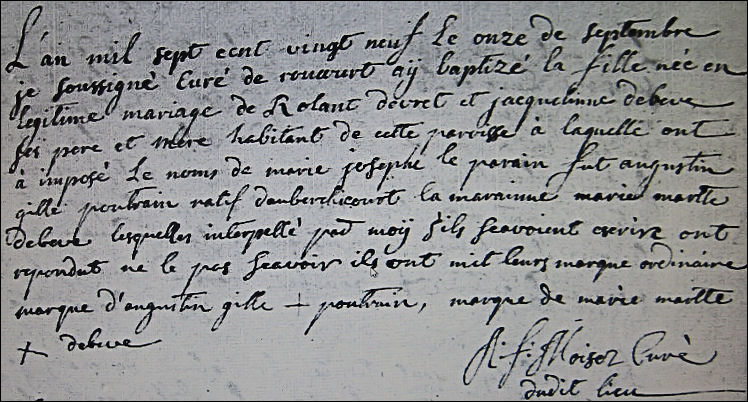 L'an mil sept cent vingt neuf le onze de septembre
je soussigné Curé de roucourt aÿ baptizé la fille née en
legitime mariage de Rolant devret et jacquelinne debeve
ses pere et mere habitant de cette paroisse à laquelle ont
à imposé le noms de marie josephe le parain fut augustin
gille poutrain natif dauberchicourt la marainne marie marlle
debeve lesquelles interpellé par moÿ s'ils scavoient escrire ont
repondut ne le pas scavoir ils ont mit leurs marque ordinaire
marque d'augustin gille + poutrain, marque de marie marlle
+ debeve
Curé
dudit lieu